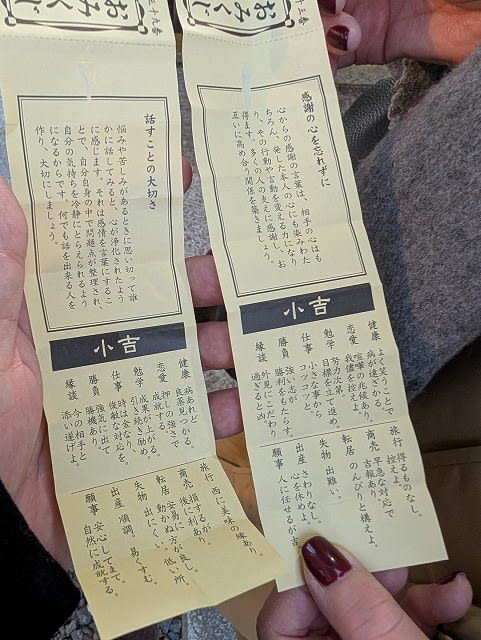 十三番
おみくじ
感謝の心を忘れずに
心からの感謝の言葉は、相手の心はも
ちろん、発した本人の心にも染みわた
り、その行動や言動を変える力になり
得ます。多くの人の支えに感謝し、お
互いに高め合う関係を築きましょう。
小吉
健康 よく笑うことで
病が遠ざかる。
恋愛 喧嘩の兆候あり。
我儘を控えよ。
勉学 努力次第。
目標を立て進め。
仕事 小さな事から
コツコツと。
勝負 強い志が
勝利をもたらす。
縁談 外見にこだわり
過ぎると凶
旅行 得るものなし。
控えよ。
商売 早急な対応で
吉報あり。
転居 のんびりと構えよ。
失物 出難い。
出産 さわりなし。
心を休めよ。
願事 人に任せるが吉
三十九番
おみくじ
話すことの大切さ
悩みや苦しみがあるときに思い切って誰
かに話してみると、心が浄化されたよう
に感じます。それは感情を言葉にするこ
とで、自分自身の中で問題点が整理され、
自分の気持ちを冷静にとらえられるよう
になるからです。何でも話を出来る人を
作り、大切にしましょう。
小吉
健康 病あれど
良医見つかる。
恋愛 押しの強さで
成就する。
勉学 成果が上がる。
引き続き努め。
仕事 時は金なり。
俊敏な対応を。
勝負 強気に出て
勝機あり。
縁談 今の相手と
添い遂げよ。
旅行 西に美味の縁あり。
商売 損するが
後に利あり。
転居 安易に
動かぬ方が良し。
失物 出にくい。低い所。
出産 順調。易くすむ。
願事 安心してまて。
自然に成就する。